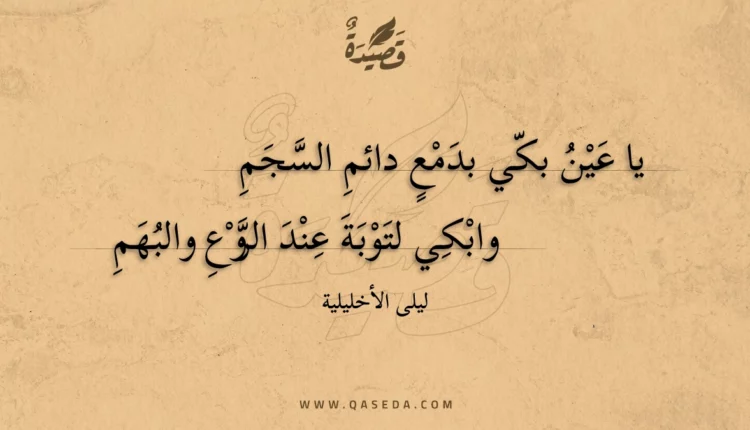 قَصِيْدَةٌ
يا عَيْنُ بكّي بدَمْعٍ دائمِ السَّجَمِ
وابْكِي لتَوْبَةَ عِنْدَ الرَّوْعِ والبُهَمِ
ليلى الأخليلية
WWW.QASEDA.COM